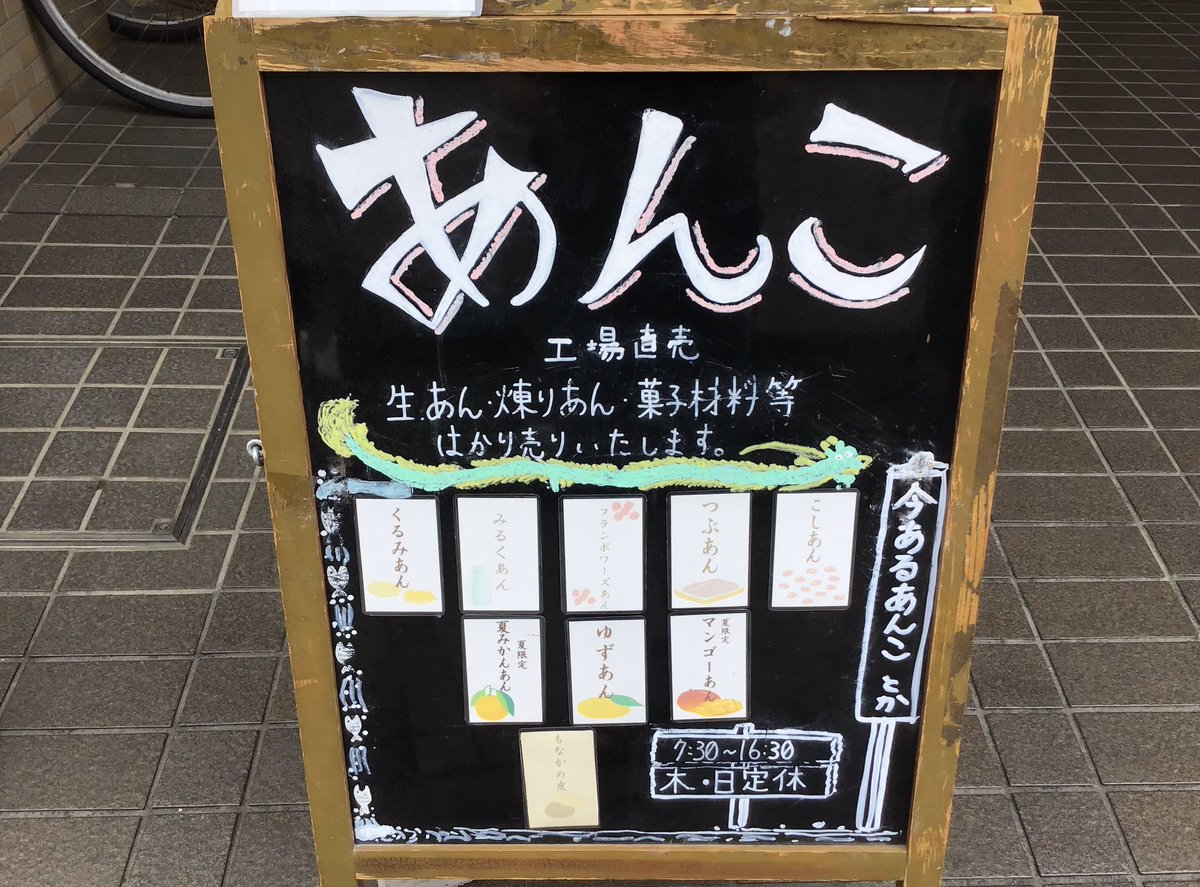 あんこ
工場直売
生あん・煉りあん・菓子材料等
はかり売りいたします。
今あるあんことか
こしあん
つぶあん
フランボワーズあん
みるくあん
くるみあん
夏限定
マンゴーあん
ゆずあん
夏限定
夏みかんあん
もなかの皮
7:30〜16:30
木・日定休